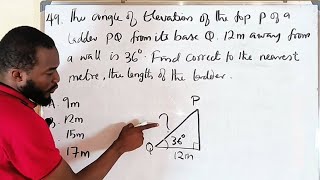 49. The angle of Elevation of the top P of a
ladder PQ from its base Q. 12m away from
a wall is 36°. Find correct to the nearest
metre, the length of the ladder.
A. 9m
B. 12m
15m
17m
P
?
Q
36°
12m